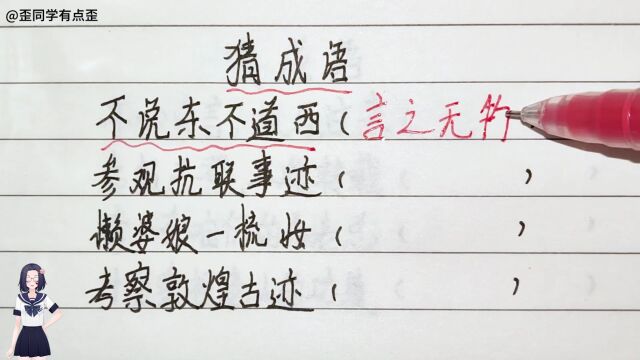 @歪同学有点歪
猜成语
不说东不道西(言之无物
参观抗联事迹( )
懒婆娘一梳妆( )
考察敦煌古迹( )